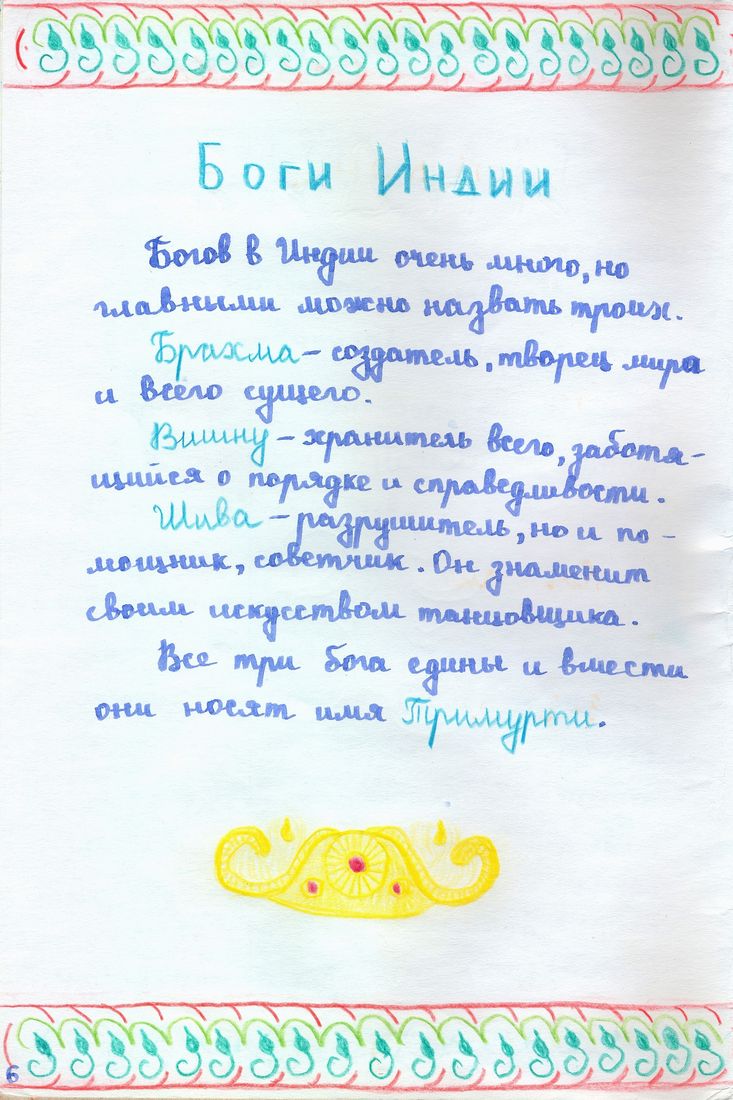 Боги Индии
Богов в Индии очень много, но
главными можно назвать троих.
Брахма – создатель, творец мира
и всего сущего.
Вишну – хранитель всего, заботя-
щийся о порядке и справедливости.
Шива – разрушитель, но и по-
мощник, советчик. Он знаменит
своим искусством танцовщика.
Все три бога едины и вмести
они носят имя Тримурти.
6